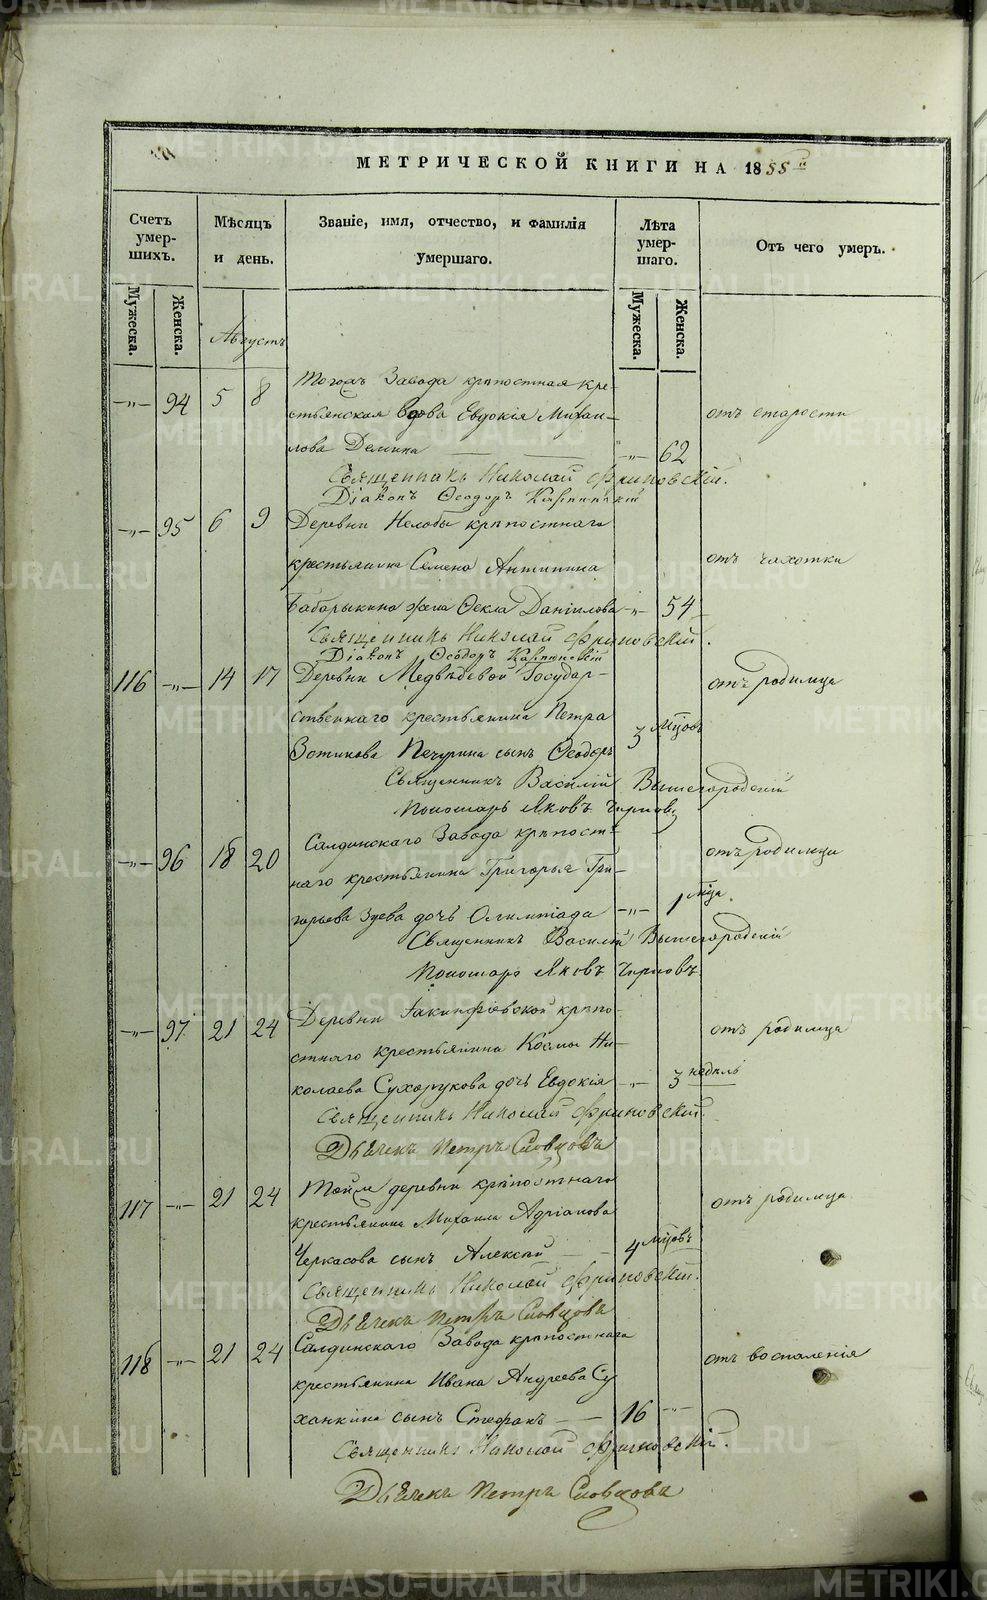 МЕТРИЧЕСКОЙ КНИГИ НА 1855
Счетъ умер-шихъ. Мѣсяцъ и день. Званіе, имя, отчество, и фамилія умершаго. Лѣта умер-шаго. Отъ чего умеръ.
Мужеска. Женска. Мужеска. Женска.
Августъ
Тогожъ Завода крѣпостная кре-
94 5 8 стьянская вдова Евдокія Михаи- отъ старости
лова Демина 62
Священникъ Николай Фриновскій.
Діаконъ Ѳеодоръ
95 6 9 Деревни Нелобы крѣпостнаго
крестьянина Семена Антипина отъ чахотки
Бабарыкина жена Ѳекла Даніилова 54
Священникъ Николай Фриновскій.
Діаконъ Ѳеодоръ
116 14 17 Деревни Медвѣдевой Государ- отъ родимца
ственнаго крестьянина Петра
Зотикова Печурина сынъ Ѳеодоръ 3 мѣцовъ
Священникъ Василій Вышегородскій
Пономарь Яковъ Чирковъ
Салдинскаго Завода крѣпост-
96 18 20 наго крестьянина Григорья Гри- отъ родимца
горьева Зуева дочь Олимпіада 1 мѣца.
Священникъ Василій Вышегородскій
Пономарь Яковъ Чирковъ
Деревни Іакинфіевской крѣпо-
97 21 24 стнаго крестьянина Космы Ни- отъ родимца
колаева Сухорукова дочь Евдокія 3 недѣль
Священникъ Николай Фриновскій.
Дьячекъ Петръ Словцовъ
Тойже деревни крѣпостнаго
117 21 24 крестьянина Михаила Адріанова отъ родимца
Черкасова сынъ Алексѣй 4 мѣцовъ
Священникъ Николай Фриновскій.
Дьячекъ Петръ Словцовъ
Салдинскаго Завода крѣпостнаго
118 21 24 крестьянина Ивана Андреева Су отъ воспаленія
ханкина сынъ Стефанъ 16
Священникъ Николай Фриновскій.
Дьячекъ Петръ Словцовъ
METRIKI.GASO-URAL.RU